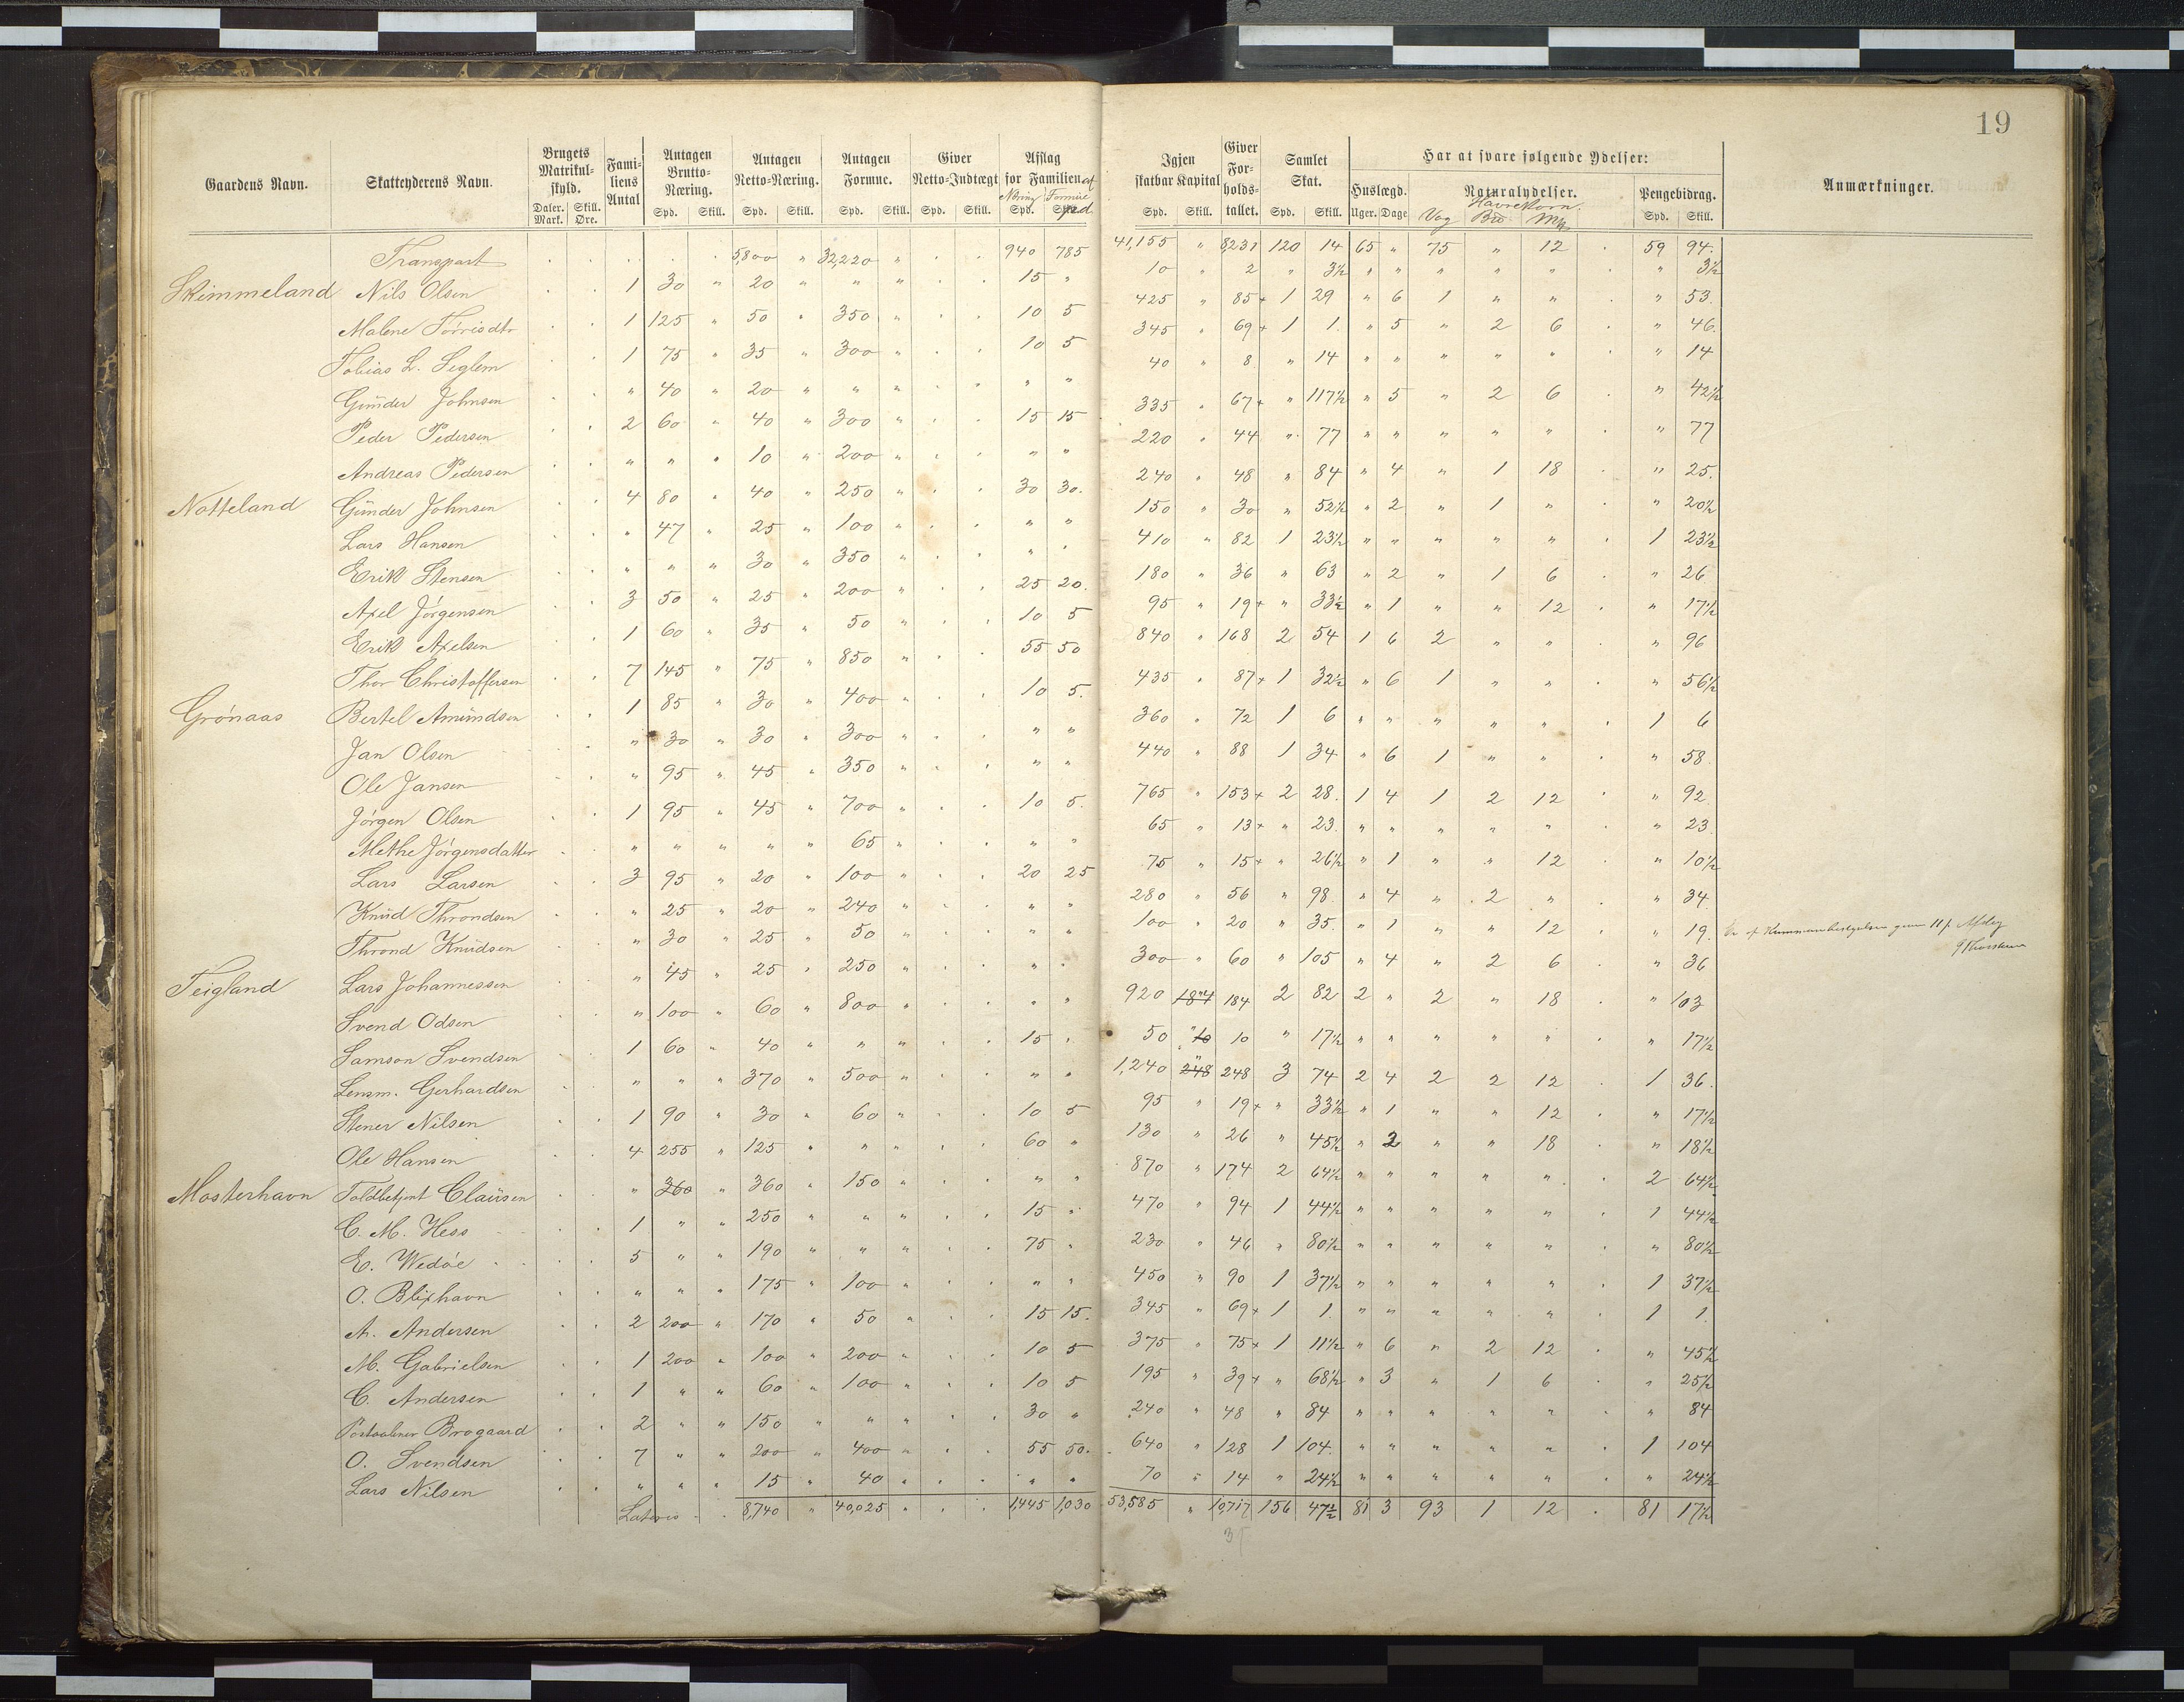 19
Gaardens Navn. | Skatteyderens Navn. | Brugets Matrikul-skyld. Daler. Mark. Skill. Øre. | Fami-liens Antal | Antagen Brutto-Næring. Spd. Skill. | Antagen Netto-Næring. Spd. Skill. | Antagen Formue. Spd. Skill. | Giver Netto-Indtægt Spd. Skill. | Afslag for Familien af Næring Formue Spd. Spd. | Igjen skatbar Kapital Spd. Skill. | Giver For-holds-tallet. | Samlet Skat. Spd. Skill. | Har at svare følgende Ydelser: Huslægd. Uger. Dage | Naturalydelser. Havrekorn. Vog | Pengebidrag. Spd. Skill. | Anmærkninger.
Transport . . . . . 5,800 " 32,220 " . . 940 785 41,155 " 8,231 120 14 65 " 75 " 12 . 59 94.
Skimmeland Nils Olsen . . 1 30 " 20 " " " . . 15 " 10 " 2 " 3½ " " " " " . " 3½
Malene Torrisdtr . . 1 125 " 50 " 350 " . . 10 5 425 " 85+ 1 29 " 6 1 " " . " 53.
Tobias L. Seglem . . 1 75 " 35 " 300 " . . 10 5 345 " 69+ 1 1. " 5 " 2 6 . " 46.
Gunder Johnsen . . " 40 " 20 " " " . . " " 40 " 8 " 14 " " " " " . " 14
Peder Pedersen . . 2 60 " 40 " 300 " . . 15 15 335 " 67+ " 117½ " 5 " 2 6 . " 42½
Andreas Pedersen . . " " " 10 " 200 " . . " " 220 " 44 " 77 " " " " " . " 77
Notteland Gunder Johnsen . . 4 80 " 40 " 250 " . . 30 30. 240 " 48 " 84 " 4 " 1 18 . " 25.
Lars Hansen . . " 47 " 25 " 100 " . . " " 150 " 30 " 52½ " 2 " 1 " . " 20½
Erik Stensen . . " " " 30 " 350 " . . " " 410 " 82 1 23½ " " " " " . 1 23½
Axel Jörgensen . . 3 50 " 25 " 200 " . . 25 20. 180 " 36 " 63 " 2 " 1 6 . " 26
Erik Axelsen . . 1 60 " 35 " 50 " . . 10 5 95 " 19+ " 33½ " 1 " " 12 . " 17½
Thor Christoffersen . . 7 145 " 75 " 850 " . . 55 50 840 " 168 2 54 1 6 2 " " . " 96
Grönaas Bertel Amundsen . . 1 85 " 30 " 400 " . . 10 5. 435 " 87+ 1 32½ " 6 1 " " . " 56½
Jan Olsen . . " 30 " 30 " 300 " . . " " 360 " 72 1 6 " " " " " . 1 6
Ole Jansen . . " 95 " 45 " 350 " . . " " 440 " 88 1 34 " 6 1 " " . " 58.
Jörgen Olsen . . 1 95 " 45 " 700 " . . 10 5. 765 " 153+ 2 28. 1 4 1 2 12 . " 92
Methe Jörgensdatter . . " " " " " 65 " . . " " 65 " 13+ " 23. " " " " " . " 23.
Lars Larsen . . 3 95 " 20 " 100 " . . 20 25 75 " 15+ " 26½ " 1 " " 12 . " 10½
Knud Throndsen . . " 25 " 20 " 240 " . . " " 280 " 56 " 98. " 4 " 2 " . " 34
Thrond Knudsen . . " 30 " 25 " 50 " . . " " 100 " 20 " 35. " 1 " " 12 . " 19.
Teigland Lars Johannessen . . " 45 " 25 " 250 " . . " " 300 " 60 " 105 " 4 " 2 6 . " 36
Svend Odsen . . " 100 " 60 " 800 " . . " " 920 184 184 2 82 2 " 2 " 18 . " 103
Samson Svendsen . . 1 60 " 40 " " " . . 15 " 50 10 10 " 17½ " " " " " . " 17½
Lensm. Gerhardsen . . " " " 370 " 500 " . . " " 1,240 248 248 3 74 2 4 2 2 12 . 1 36.
Stener Nilsen . . 1 90 " 30 " 60 " . . 10 5 95 " 19+ " 33½ " 1 " " 12 . " 17½
Ole Hansen . . 4 255 " 125 " " " . . 60 " 130 " 26 " 45½ " 2 " " 18 . " 18½
Mosterhavn Toldbetjent Clausen . . " 360 " 360 " 150 " . . " " 870 " 174 2 64½ " " " " " . 2 64½
C. M. Hess . . 1 " " 250 " " " . . 15 " 470 " 94 1 44½ " " " " " . 1 44½
E. Wedöe . . 5 " " 190 " " " . . 75 " 230 " 46 " 80½ " " " " " . " 80½
O. Blixhavn . . " " " 175 " 100 " . . " " 450 " 90 1 37½ " " " " " . 1 37½
A. Andersen . . 2 200 " 170 " 50 " . . 15 15. 345 " 69+ 1 1. " " " " " . 1 1.
M. Gabrielsen . . 1 200 " 100 " 200 " . . 10 5 375 " 75+ 1 11½ " 6 " 2 12 . " 45½
C. Andersen . . 1 " " 60 " 100 " . . 10 5 195 " 39+ " 68½ " 3 " 1 6 . " 25½
Brogaard . . 2 " " 150 " " " . . 30 " 240 " 48 " 84 " " " " " . " 84
O. Svendsen . . 7 " " 200 " 400 " . . 55 50. 640 " 128 1 104. " " " " " . 1 104
Lars Nilsen . . " " " 15 " 40 " . . " " 70 " 14 " 24½ " " " " " . " 24½
Lateris . . 8,740 " 40,025 " . . 1,445 1,030 53,585 " 10,717 156 47½ 81 3 93 1 12 . 81 17½